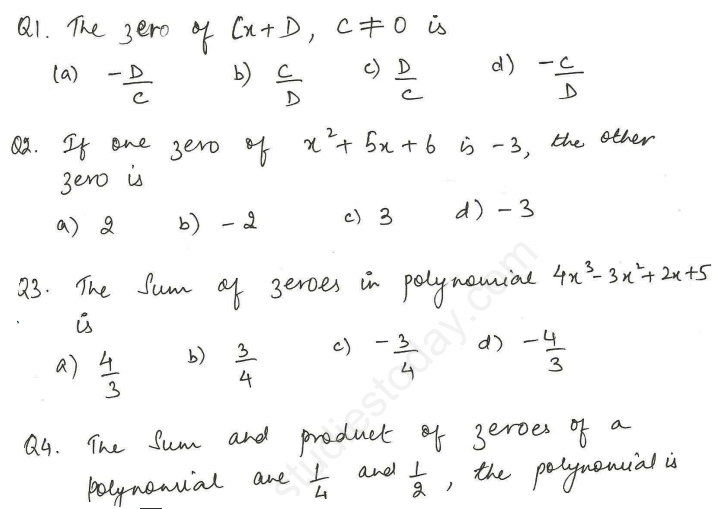 Q1. The zero of Cx + D, C ≠ 0 is
(a) -D/C b) C/D c) D/C d) -C/D
Q2. If one zero of x² + 5x + 6 is -3, the other
zero is
a) 2 b) -2 c) 3 d) -3
Q3. The Sum of zeroes in polynomial 4x³ - 3x² + 2x + 5
is
a) 4/3 b) 3/4 c) -3/4 d) -4/3
Q4. The Sum and product of zeroes of a
polynomial are 1/4 and 1/2, the polynomial is
studiestoday.com